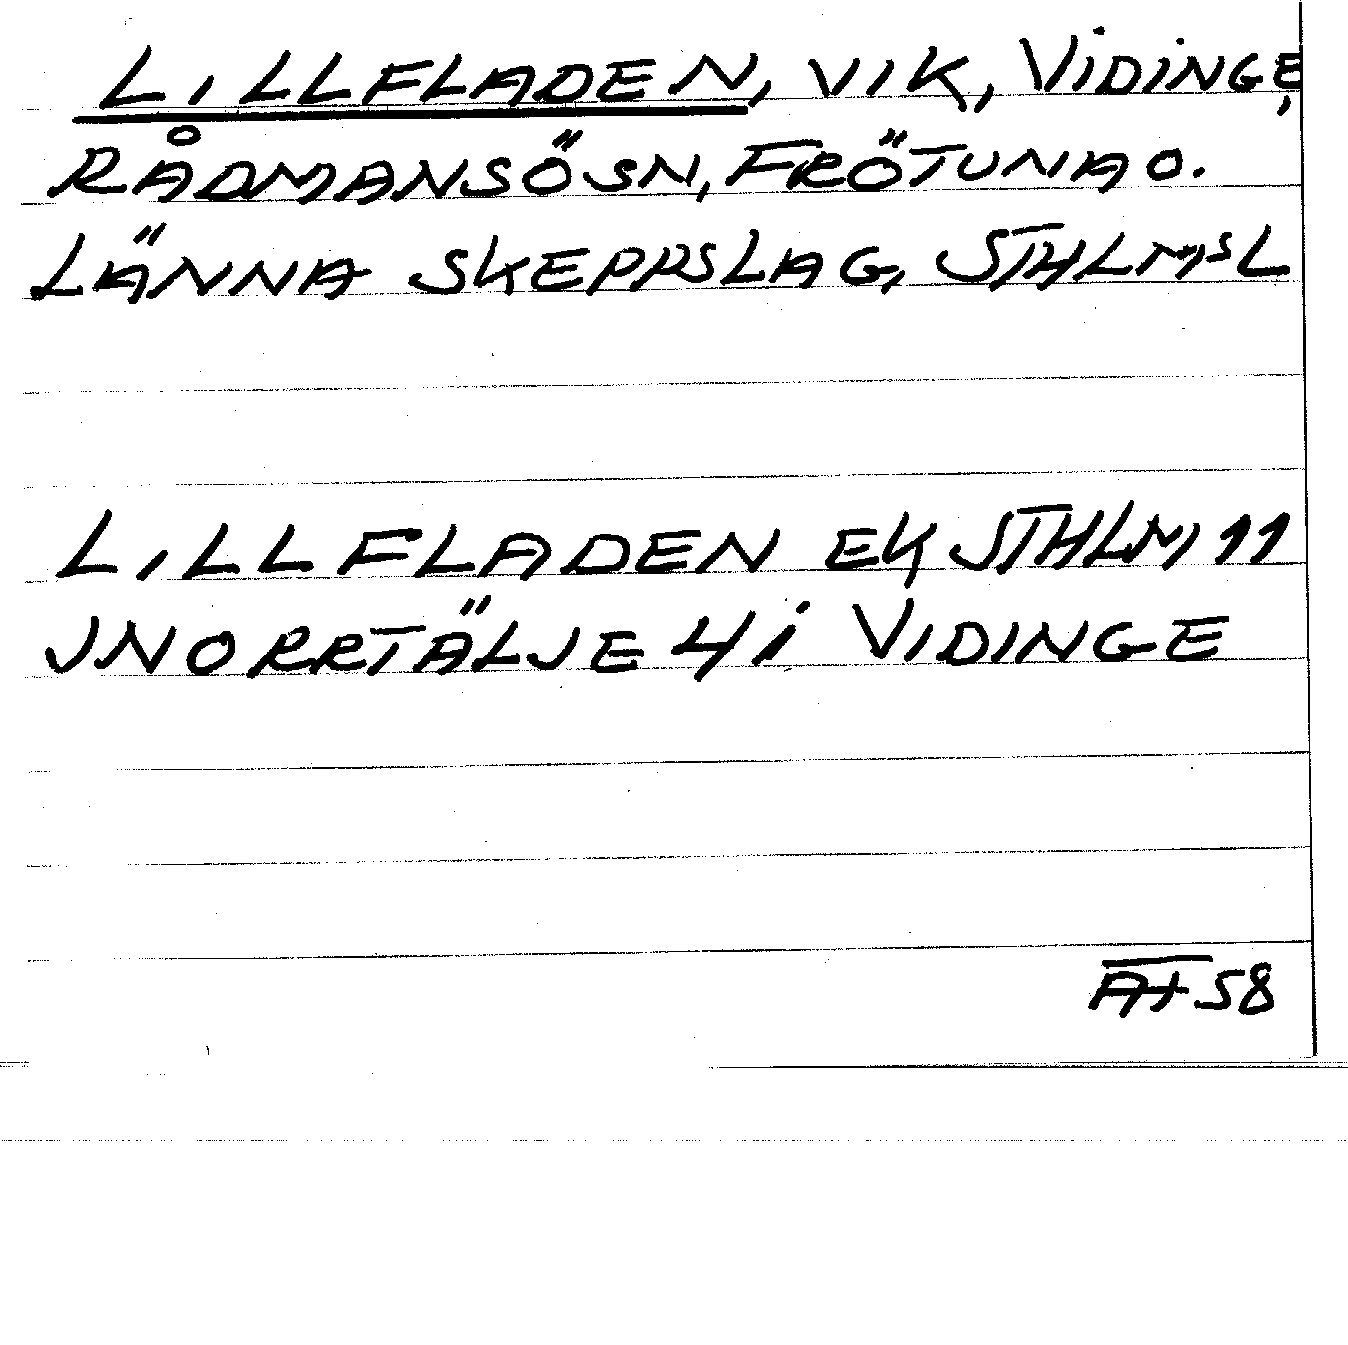 LILLFLADEN, VIK, VIDINGE,
RÅDMANSÖ SN, FRÖTUNA O.
LÄNNA SKEPPSLAG, STHLMSL
LILLFLADEN EK STHLM 11
JNORRTÄLJE 4 i VIDINGE
58